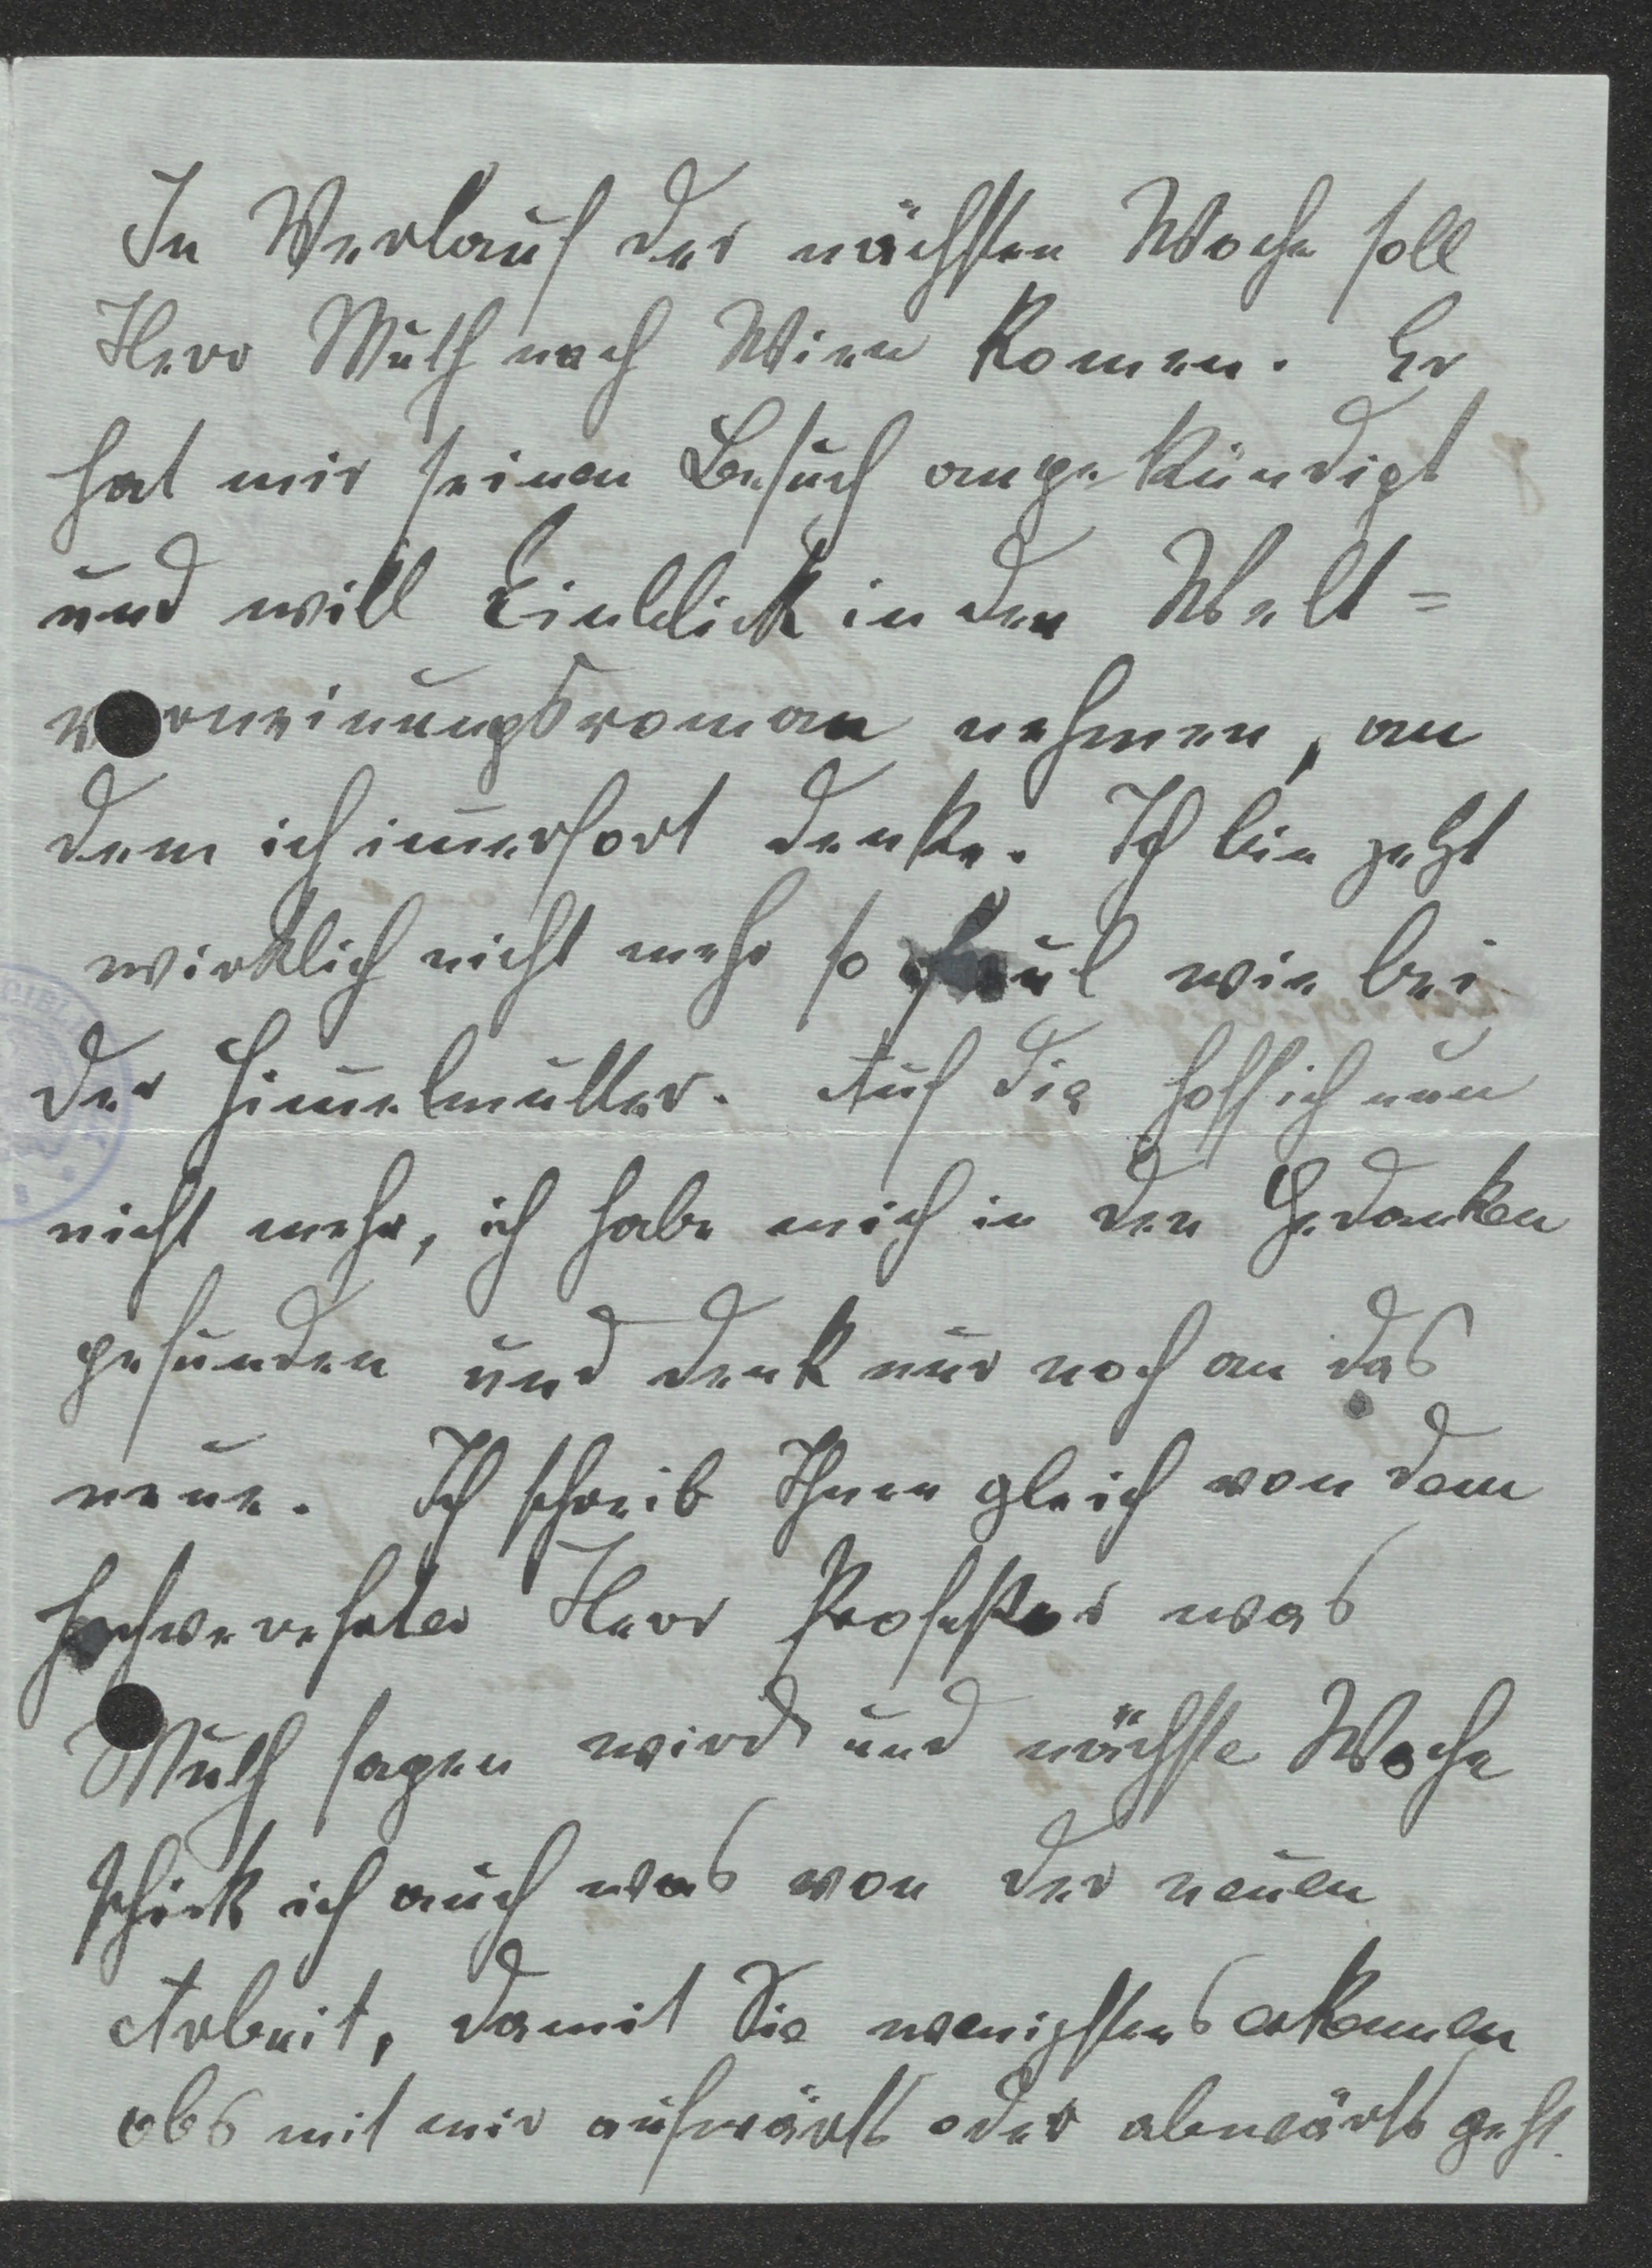 In Verlauf der nächsten Woche soll
Herr Muth nach Wien komen. Er
hat mir seinen Besuch angekündigt
und will Einblick in den Welt=
verneinungsroman nehmen, an
dem ich im̅erfort denke. Ich bin jetzt
wirklich nicht mehr so faul wie bei
der Him̅elmutter. Auf die hoff ich nun
nicht mehr, ich habe mich in den Gedanken
gefunden und denk nur noch an das
neue. Ich schreib Ihnen gleich von dem
hochverehrter Herr Professor was
Muth sagen wird und nächste Woche
schick ich auch was von der neuen
Arbeit, damit Sie wenigstens erkennen
obs mit mir aufwärts oder abwärts geht.